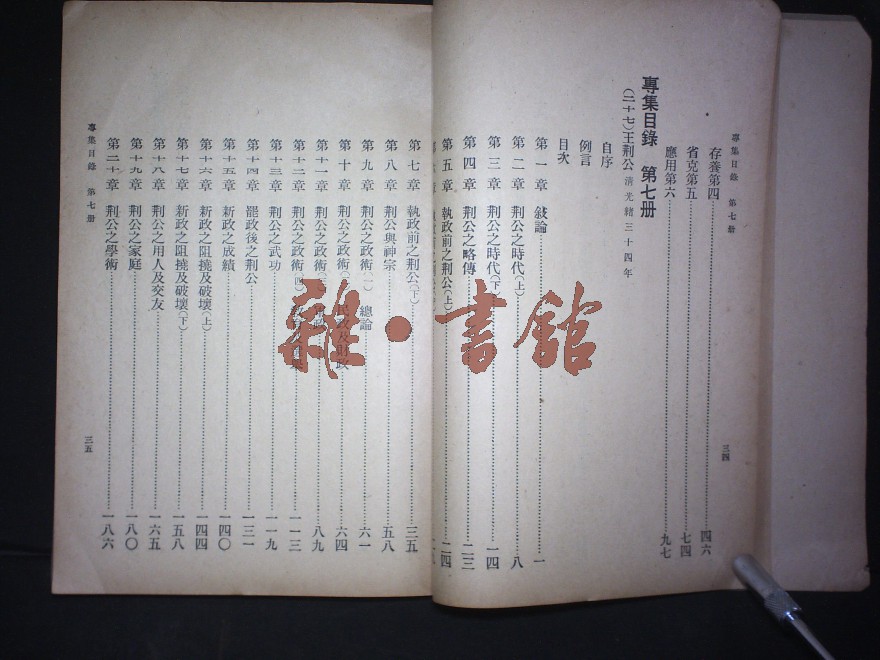 專集目錄 第七册
存養第四 四六
省克第五 七四
應用第六 九七
專集目錄 第七册
(二十七)王荆公 清光緒三十四年
自序
例言
目次
第一章 敍論 一
第二章 荆公之時代(上) 八
第三章 荆公之時代(下) 一四
第四章 荆公之略傳 二三
第五章 執政前之荆公(上) 二四
三四
第七章 執政前之荆公(下) 三五
第八章 荆公與神宗 五八
第九章 荆公之政術(一) 總論 六一
第十章 荆公之政術 民政及財政 六四
第十一章 荆公之政術 八九
第十二章 荆公之政術(四) 一一三
第十三章 荆公之武功 一一九
第十四章 罷政後之荆公 一三一
第十五章 新政之成績 一四〇
第十六章 新政之阻撓及破壞(上) 一四四
第十七章 新政之阻撓及破壞(下) 一五八
第十八章 荆公之用人及交友 一六五
第十九章 荆公之家庭 一八〇
第二十章 荆公之學術 一八六
專集目錄 第七册
三五
雜·書館